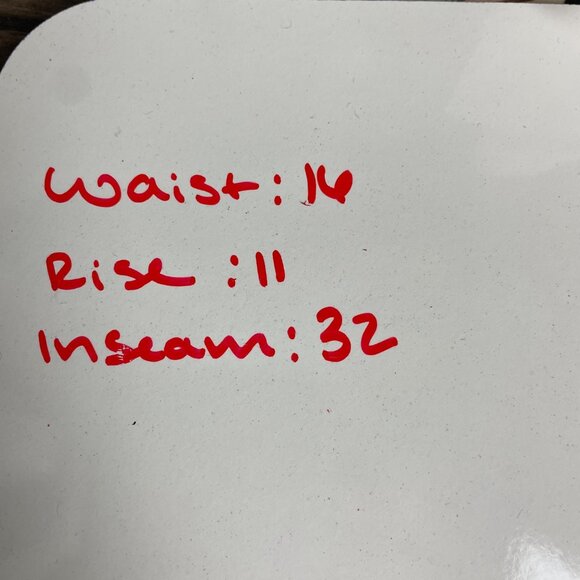 Waist: 16
Rise: 11
Inseam: 32